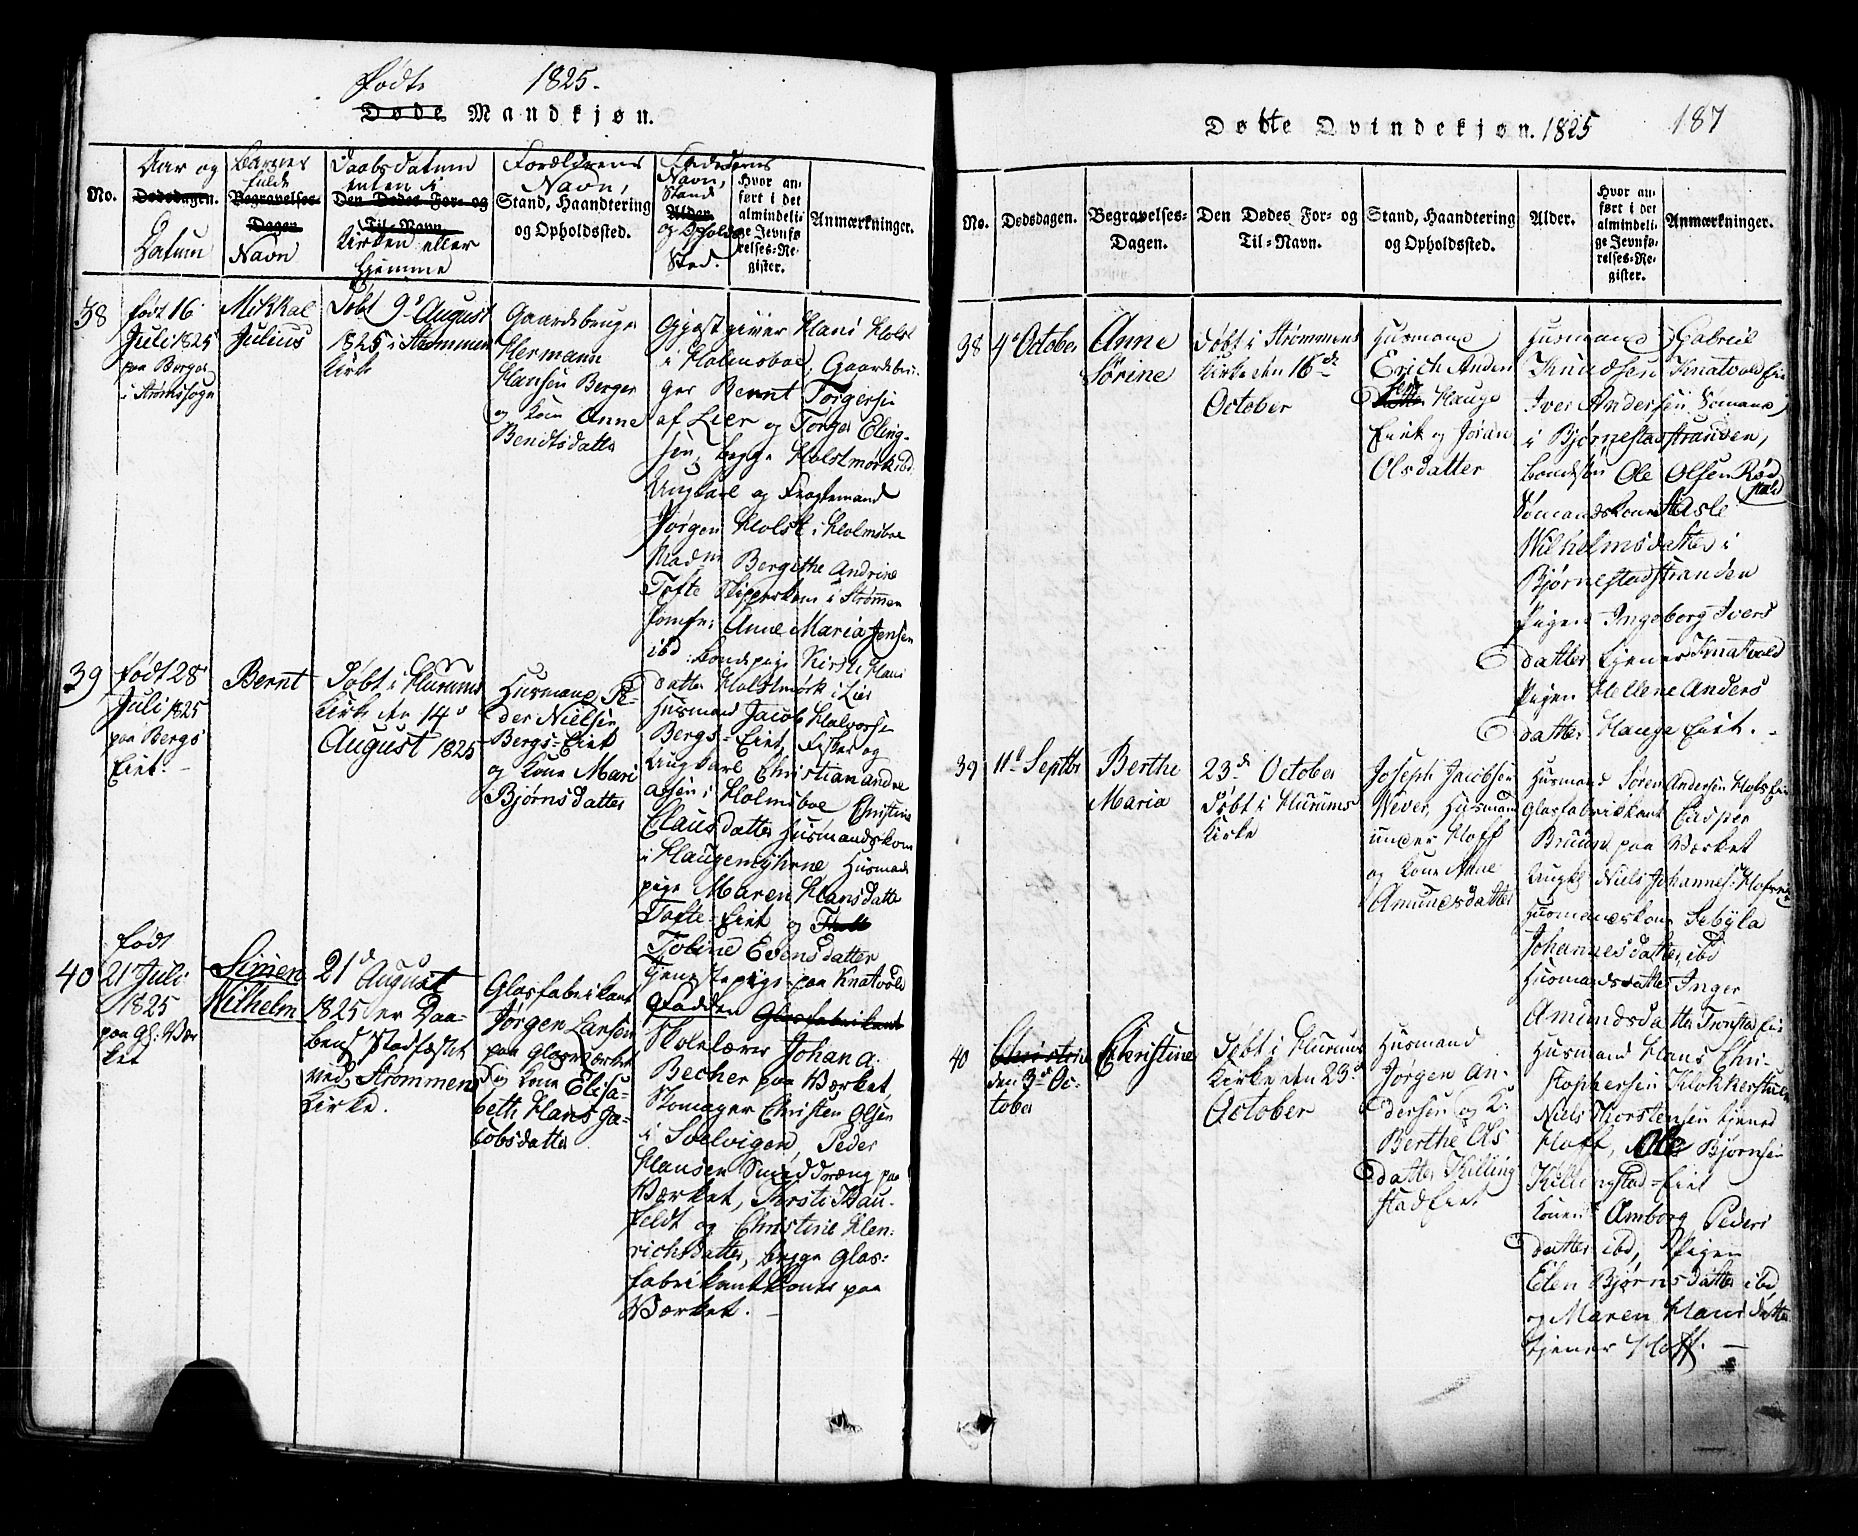 Fødte 1825.
Døde Mandkjøn.
No.
Aar og
Dødsdagen.
Datum
Barnets
fulde
Begravelses-
Dagen.
Navn
Daabsdatum
enten i
Den Dødes For- og
Til-Navn.
Kirken eller
hjemme
Forældrenes
Navn,
Stand, Haandtering
og Opholdssted.
Faddernes
Navn,
Stand
Alder.
og Opholds
Sted.
Hvor an-
ført i det
almindeli-
ge Jevnfø-
relses-Re-
gister.
Anmærkninger.
38
født 16
Juli 1825
paa Berger
i Strømssogn
Mikkal
Julius
Døbt 9de August
1825 i Strømmen
Kirke
Gaardbruger
Hermann
Hansen Berger
og Kone Anne
Bendtsdatter
Gjæstgiver Hans Holst
i Holmsboe, Gaardbru-
ger Bernt Torgersen
af Lier og Torger Eling-
sen, begge Holstmork ibd
Ungkarl og Fragtemand
Jørgen Holst i Holmsboe
Madm Bergithe Andrine
Tofte Skipperkone i Strømmen
Jomfr: Anne Maria Jensen
ibd: Bondepige Kirsti Hans
datter Holstmork i Lier
39
født 28
Juli 1825
paa Bergs
Eiet.
Bernt
Døbt i Hurums
Kirke den 14de
August 1825
Husmand Pe-
der Nielsen
Bergs-Eiet
og Kone Mari
Bjørnsdatter
Husmand Jacob Halvorsen
Bergs-Eiet, Fisker og
Ungkarl Christian Andre
assen i Holmsboe Christine
Clausdatter Husmandskone
i Haugemyhrene Husmands
pige Maren Hansdatter
Tofte-Eiet og
Toline Evensdatter
Tjenestepige paa Knatvold
40
født
21de Juli
1825
paa Gl: Vær
ket
Simen
Wilhelm
21de August
1825 er Daa-
ben stadfæstet
ved Strømmens
Kirke.
Glasfabrikant
Jørgen Larsen
paa Glasværket
og Kone Elisa-
beth Hans Ja-
cobsdatter
Fadden Glasfabrikant
Skolelærer Johan A.
Becher paa Værket,
Skomager Christen Olsen
i Solvigen, Peder
Hansen Smeddræng paa
Værket, Kirsti Hau-
feldt og Christine Hen-
richsdatter, begge Glas-
fabrikantkoner paa
Værket.
Døbte Qvindekjøn. 1825
187
No.
Dødsdagen.
Begravelses-
Dagen.
Den Dødes For- og
Til-Navn.
Stand, Haandtering
og Opholdssted.
Alder.
Hvor an-
ført i det
almindeli-
ge Jevnfø-
relses-Re-
gister.
Anmærkninger.
38
4de October
Anne
Sørine
Døbt i Strømmens
Kirke den 16de
October
Husmand
Erich Ander
sen Hauge
Eiet og Jøran
Olsdatter
Husmand Gabriel
Knudsen Knatvold Eiet
Iver Andersen Sømand
i Bjørnestadstranden,
Bondesøn Ole Olsen Rød
Sømandskone Aasle
Wilhelmsdatter i
Bjørnestadstranden
Pigen Ingeborg Ivers
datter tjener Knatvold
Pigen Hellene Anders
datter Hauge Eiet.
39
11de Septbr
Berthe
Maria
23de October
Døbt i Hurums
Kirke
Joseph Jacobsen
Wever, Husmand
under Hoff
og Kone Anne
Amundsdatter
Husmand Søren Andersen Hofs Eiet
Glasfabrikant Casper
Bruun paa Værket
Ungk: Niels Johannes: Hofs
Husmandskone Sebylla
Johannesdatter ibd
Husmandsdatter Inger
Amundsdatter Tronstad Eiet
40
Christine
den 3de Oc-
tober
Christine
Døbt i Hurums
Kirke den 23de
October
Husmand
Jørgen An-
dersen og K:
Berthe Ols
datter Killing
stad Eiet
Husmand Hans Chri-
stophersen Klokkerstuen
Niels Thorstensen tjener
Hoff, Ole Bjørnsen
Killingstad-Eiet
Konen Amborg Peders
datter ibd, Pigen
Elen Bjørnsdatter ibd
og Maren Hansdatter
tjener Hoff.